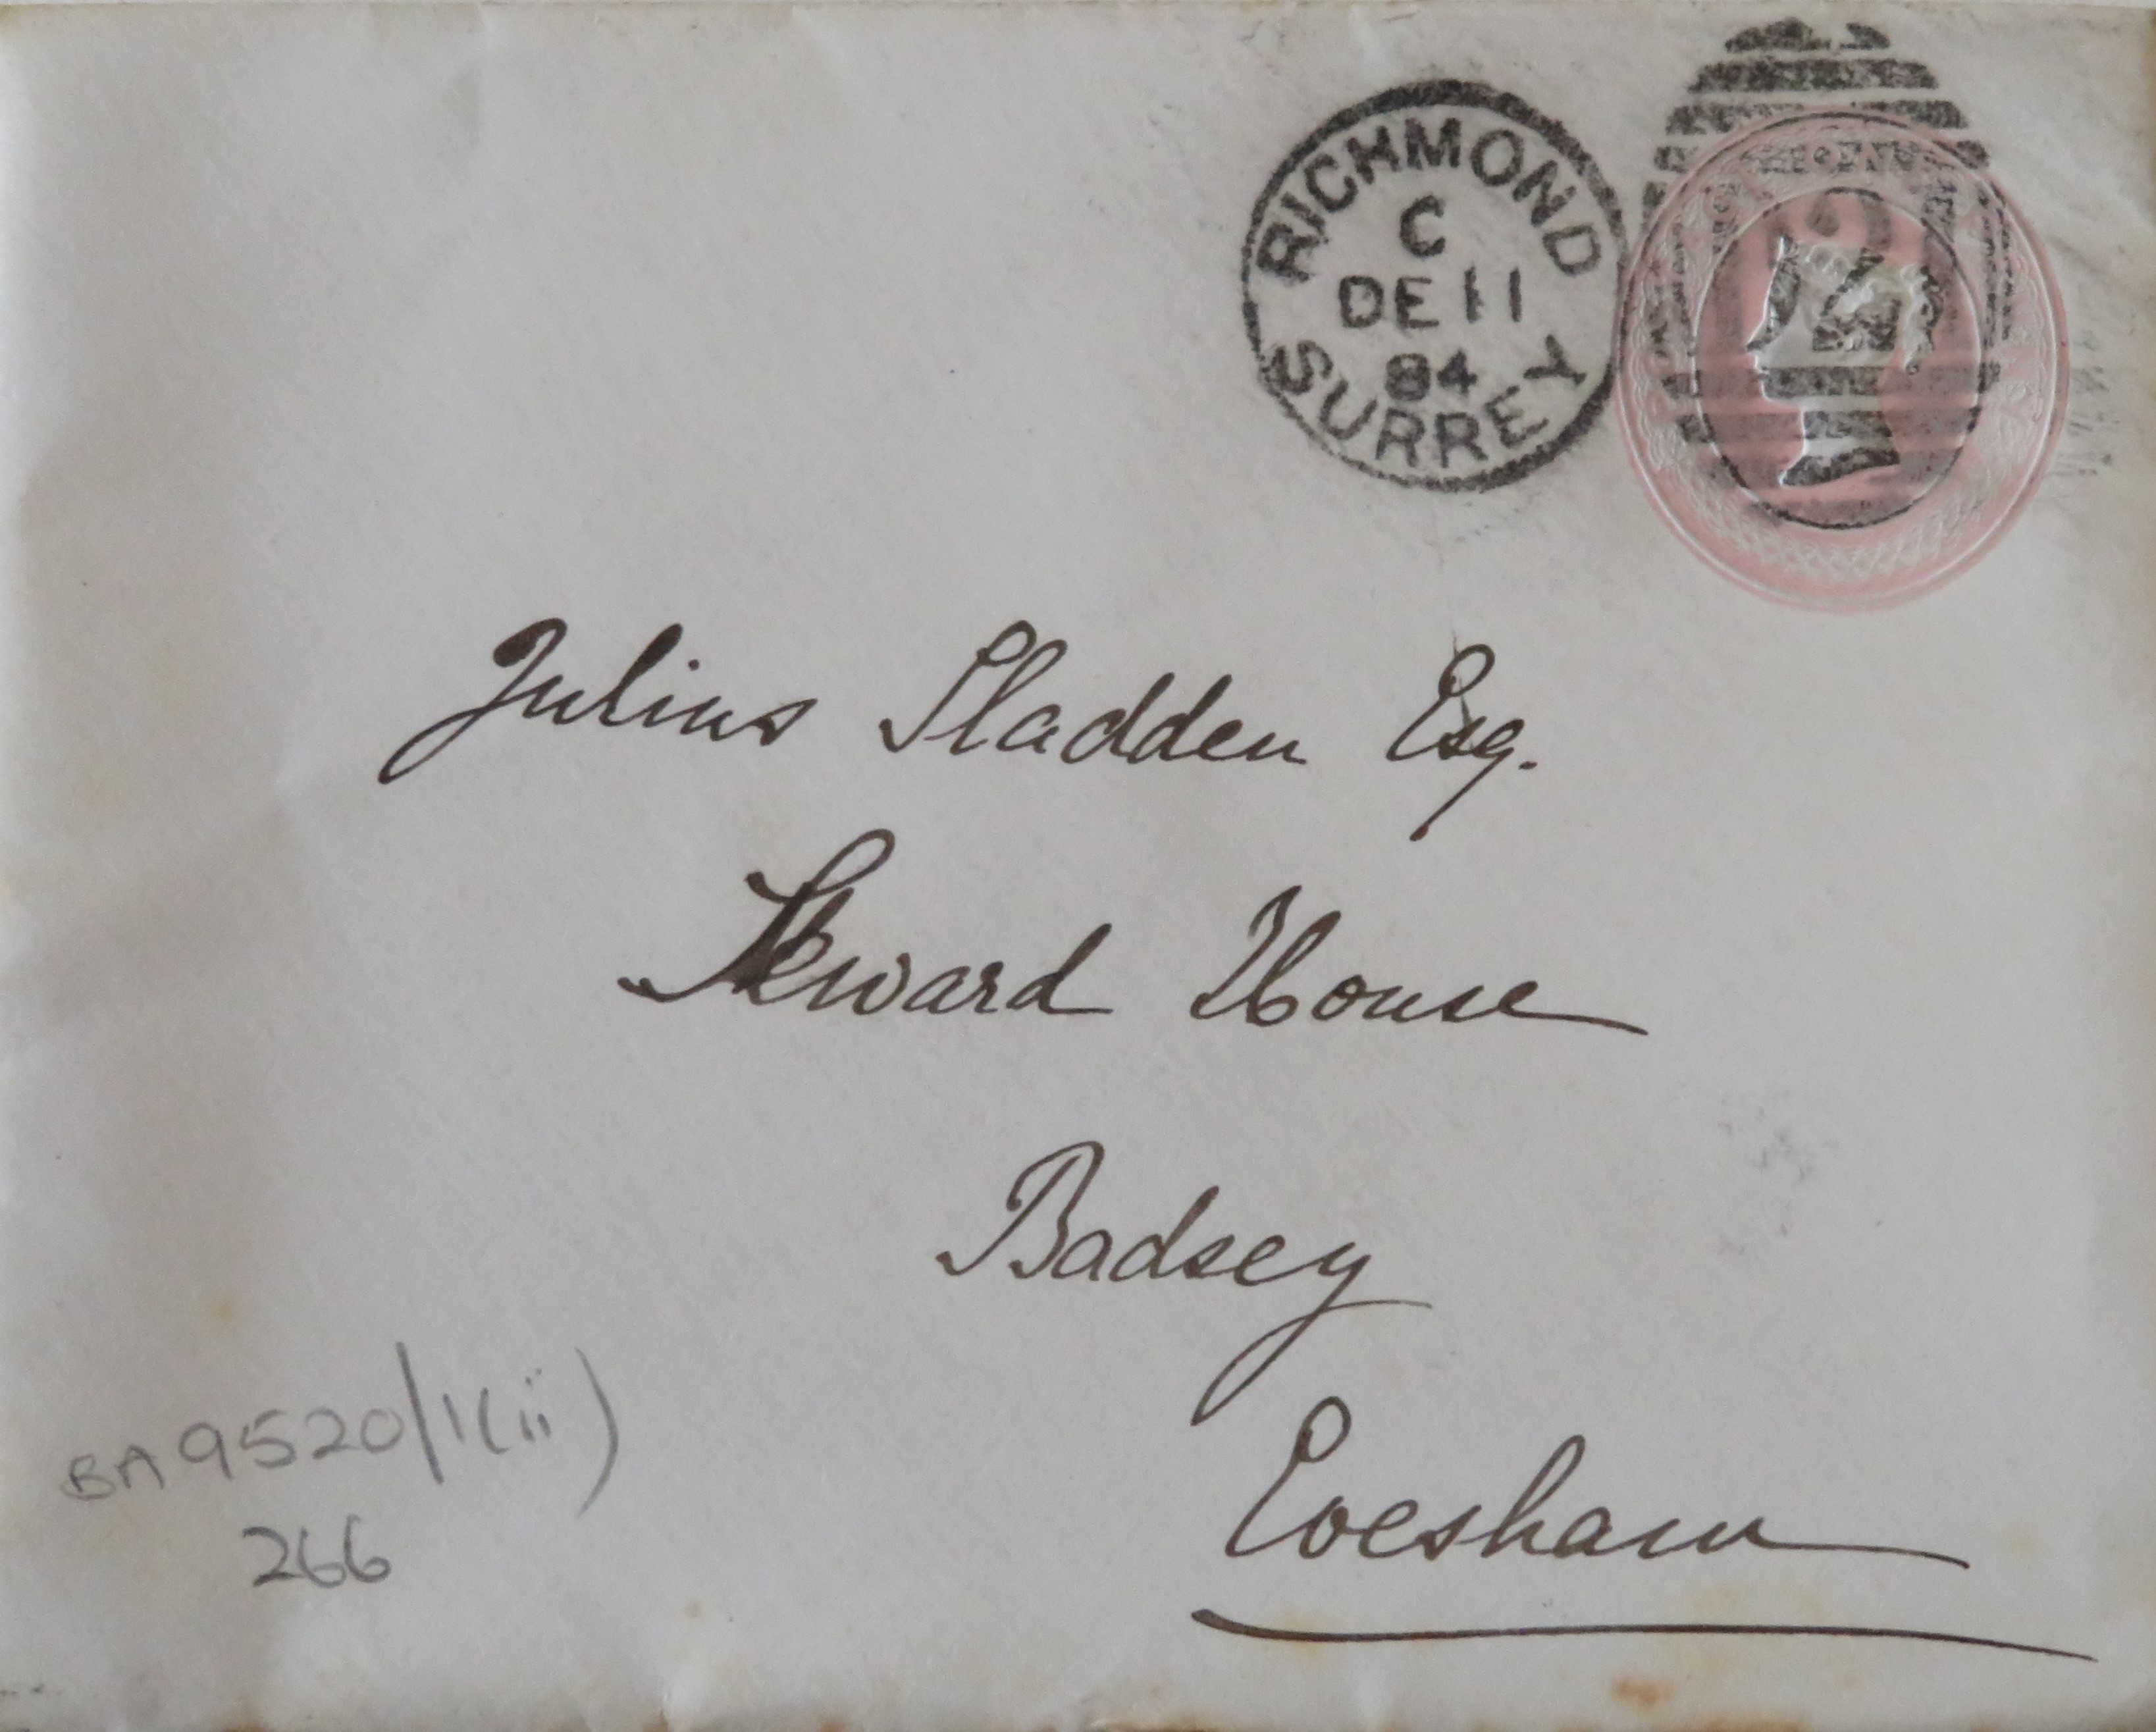 RICHMOND
C
DE 11
84
SURREY
Julius Sladden Esq.
Seward House
Badsey
Evesham
BA 9520/1(ii)
266